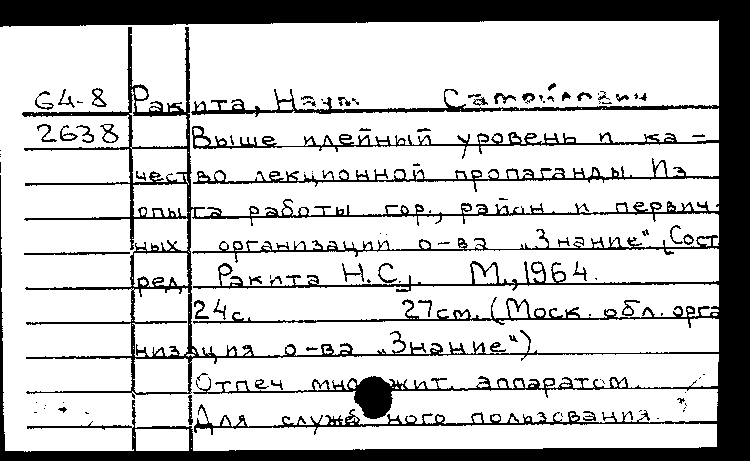 64-8 Ракита, Наум Самойлович
2638 Выше идейный уровень и ка-
чество лекционной пропаганды. Из
опыта работы гор., район. и первич-
ных организаций о-ва "Знание", [Сост.
ред. Ракита Н.С.]. М., 1964.
24с. 27см. (Моск. обл. орга
низация о-ва "Знание").
Отпеч множит. аппаратом.
Для служебного пользования.